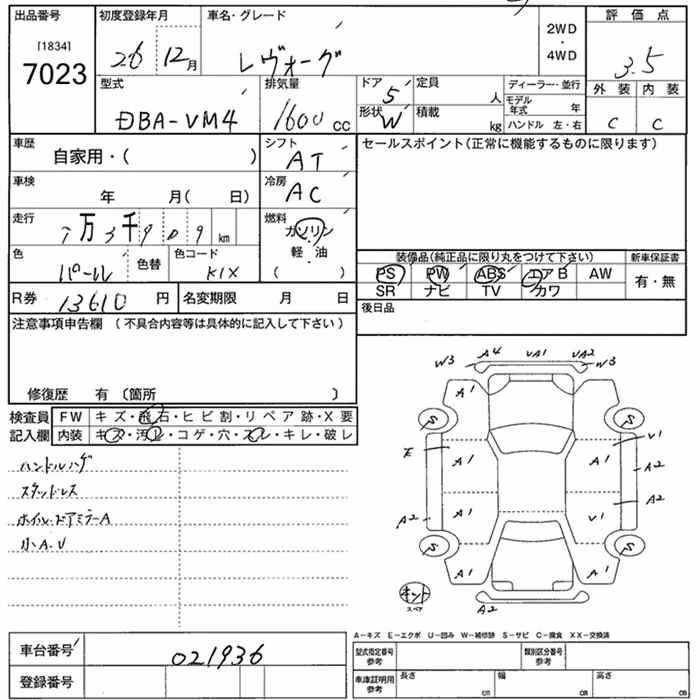 出品番号 初度登録年月 車名・グレード 2WD・4WD 評価点
[1834]
7023
26 12月 レヴォーグ 3.5
型式 排気量 ドア 5 定員 人 ディーラー・並行 外装 内装
DBA-VM4 1600cc 形状 W 積載 kg モデル年式 年 C C
ハンドル 左・右
車歴 自家用・( ) シフト AT セールスポイント(正常に機能するものに限ります)
車検 年 月( 日) 冷房 AC
走行 7万3千909km 燃料 ガソリン
軽・油
( )
色 パール 色替 色コード K1X 装備品(純正品に限り丸をつけて下さい) 新車保証書
PS PW ABS エアB AW 有・無
SR ナビ TV カワ
R券 13610円 名変期限 月 日 後日品
注意事項申告欄 (不具合内容等は具体的に記入して下さい)
修復歴 有 〔箇所 〕
検査員 FW キズ・飛石・ヒビ割・リペア跡・X要
記入欄 内装 キズ・汚レ・コゲ・穴・スレ・キレ・破レ
ハンドルハゲ
スタッドレス
ホイル・ドアミラーA
小A.U
W3 A4 UA1 UA2 W3
A1
S S
E A1 A1 U1
A2
A2 A1 U1 A2
S S
A1 A1
キット
スペア
A2
A-キズ E-エクボ U-凹み W-補修跡 S-サビ C-腐食 XX-交換済
車台番号 021936 型式指定番号 参考 類別区分番号 参考
登録番号 車庫証明用 参考 長さ cm 幅 cm 高さ cm